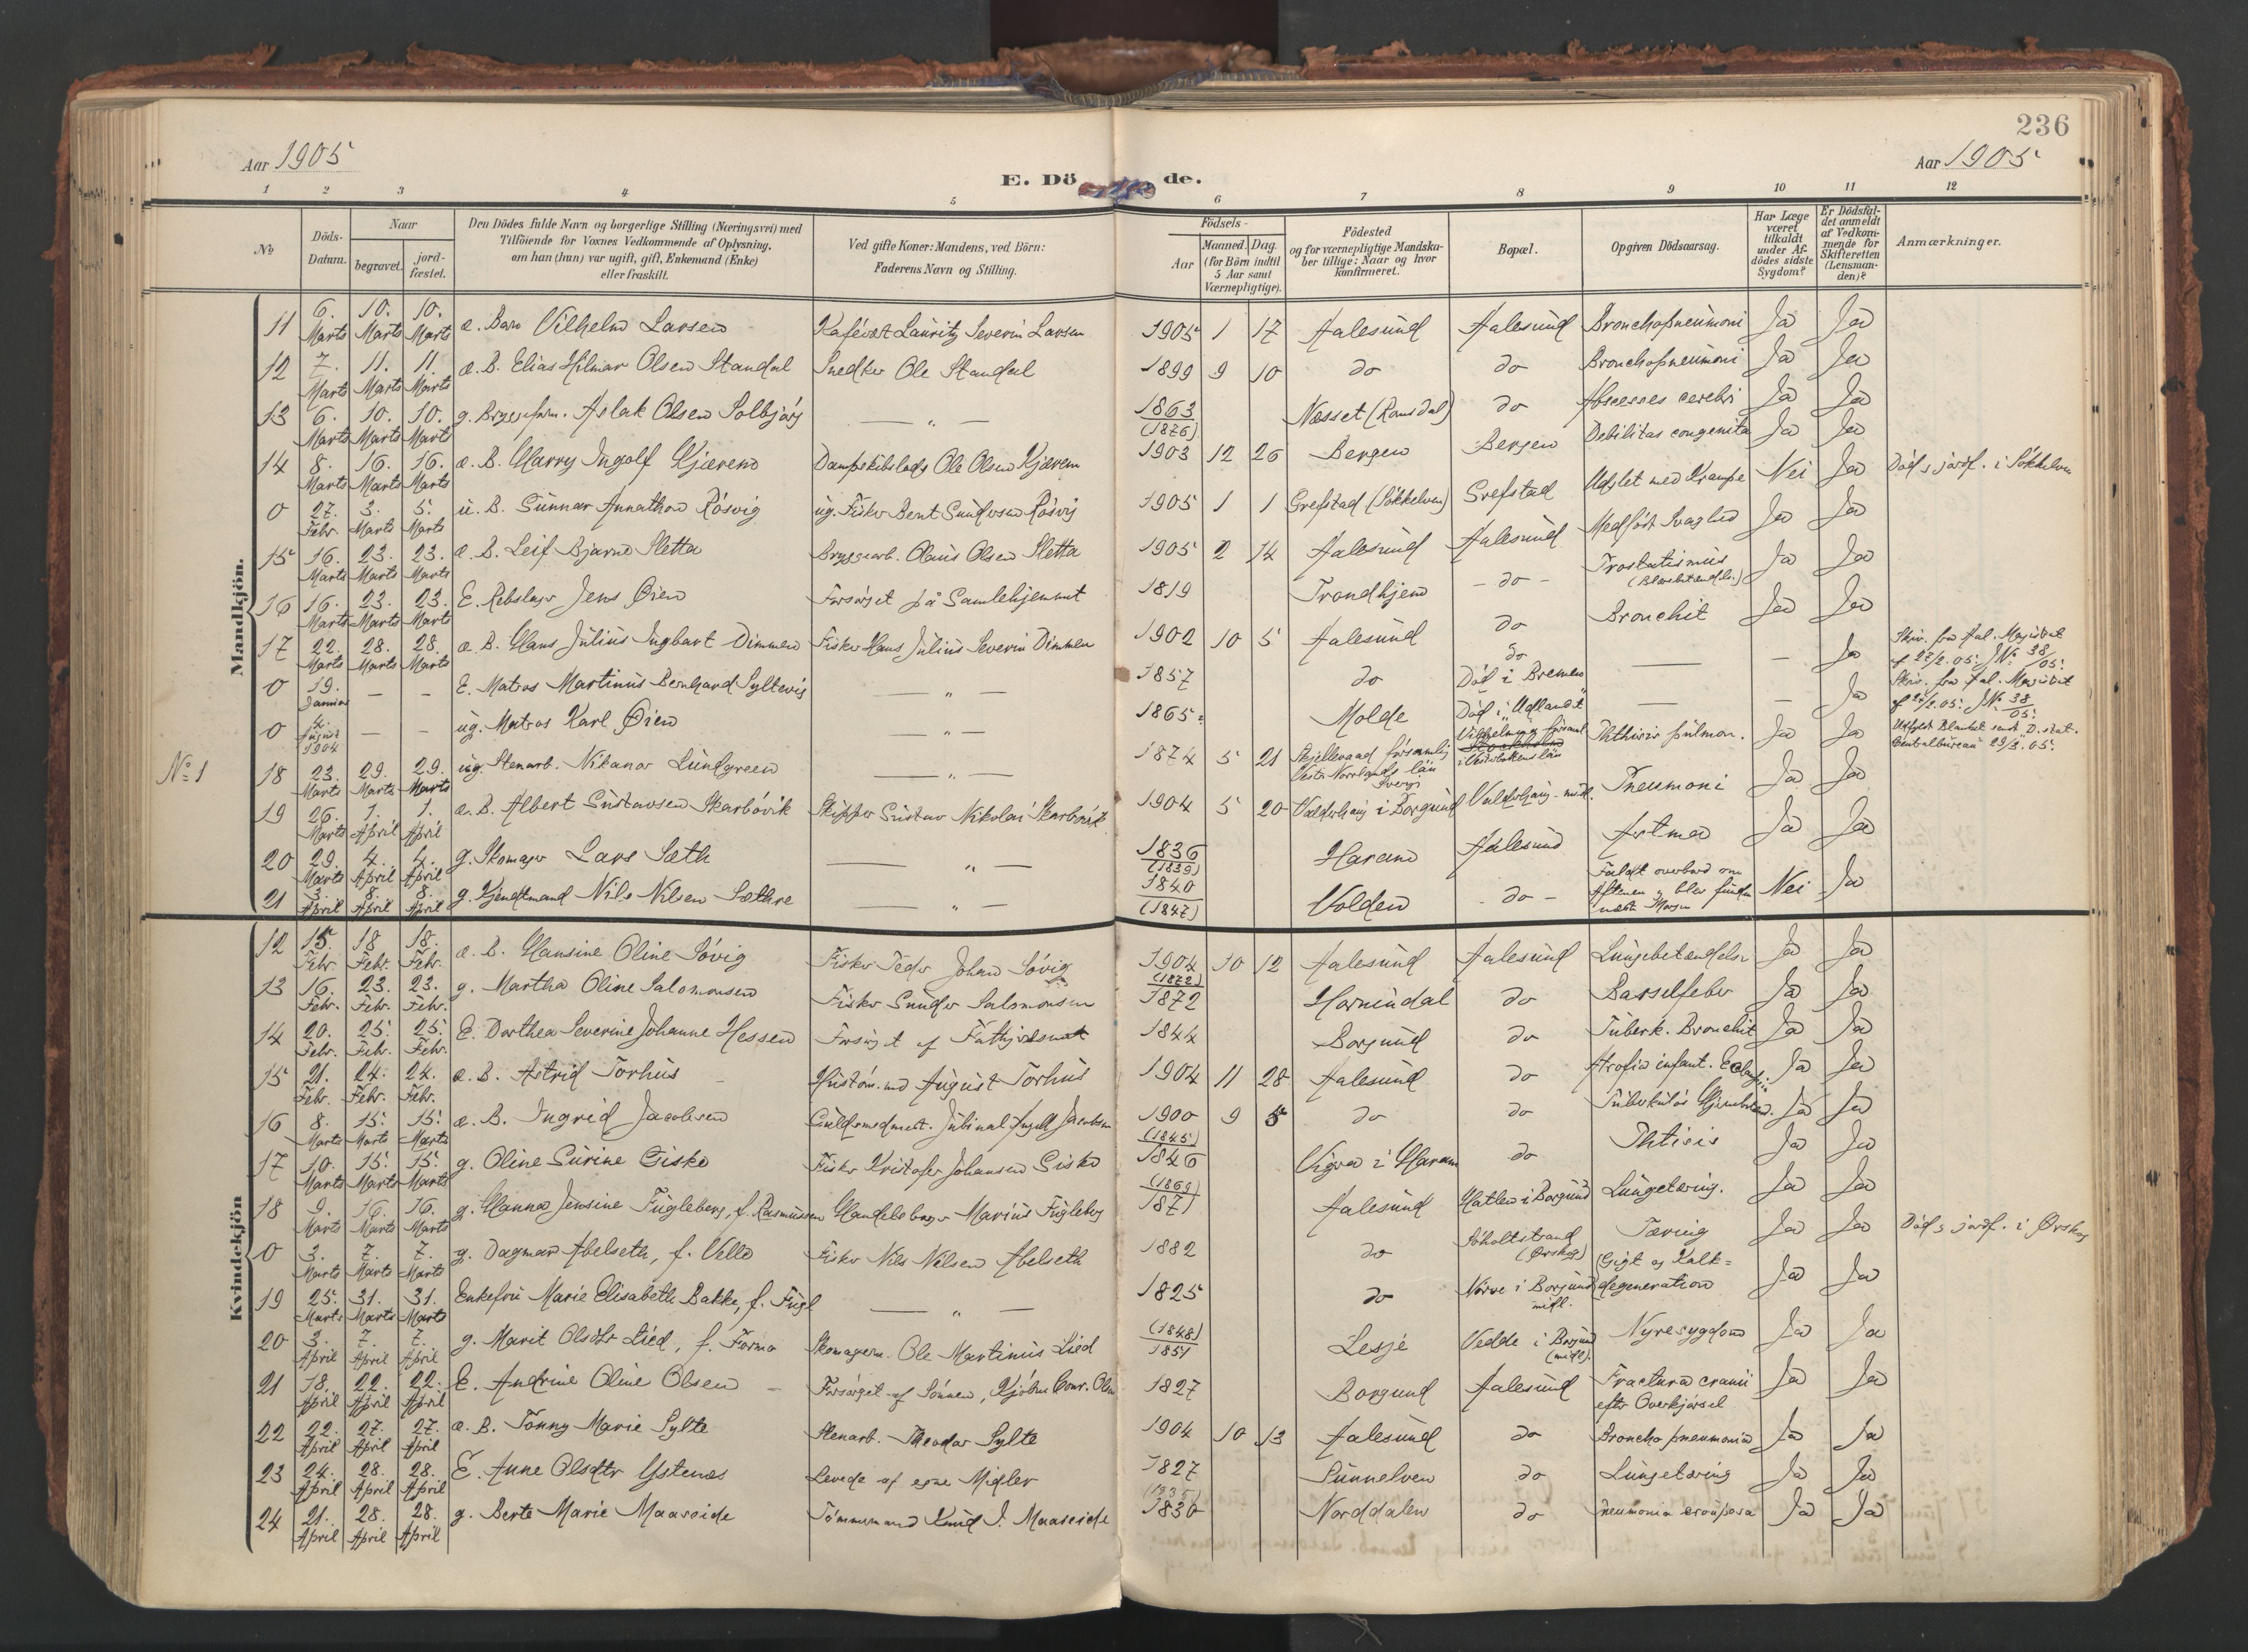 236
Aar 1905
Aar 1905
E. Dö de.
1 2 3 4 5 6 7 8 9 10 11 12
No
Döds-Datum.
Naar
begravet. jord-fæstet.
Den Dödes fulde Navn og borgerlige Stilling (Næringsvei) med
Tilföiende for Voxnes Vedkommende af Oplysning,
om han (hun) var ugift, gift, Enkemand (Enke)
eller fraskilt.
Ved gifte Koner: Mandens, ved Börn:
Faderens Navn og Stilling.
Födsels-
Aar
Maaned. Dag.
(for Börn indtil
5 Aar samt
Værnepligtige).
Födested
og for værnepligtige Mandska-
ber tillige: Naar og hvor
konfirmeret.
Bopæl.
Opgiven Dödsaarsag.
Har Læge
været
tilkaldt
under Af-
dödes sidste
Sygdom?
Er Dödsfal-
det anmeldt
af Vedkom-
mende for
Skifteretten
(Lensman-
den)?
Anmærkninger.
Mandkjön.
11 6. Marts 10. Marts 10. Marts æ. Barn Vilhelm Larsen Kafévært Lauritz Severin Larsen 1905 1 17 Aalesund Aalesund Bronchopneumoni Ja Ja
12 7. Marts 11. Marts 11. Marts æ. B. Elias Hilmar Olsen Standal Snedker Ole Standal 1899 9 10 do do Bronchopneumoni Ja Ja
13 6. Marts 10. Marts 10. Marts g. Aslak Olsen Solbjørg — „ — 1863 (1876) Næsset (Romsdal) do Abscesses cerebri Ja Ja
14 8. Marts 16. Marts 16. Marts æ. B. Harry Ingolf Kjærem Dampskibslods Ole Olsen Kjærem 1903 12 26 Bergen Bergen Debilitas congenita Ja Ja
0 27. Febr. 3. Marts 5. Marts u. B. Gunnar Annathon Røsvig ug. Fisker Bent Røsvig 1905 1 1 Grefstad (Søkkelven) Grefstad Udslet med Krampe Nei Ja Død & jordf. i Søkkelven
15 16. Marts 23. Marts 23. Marts æ. B. Leif Bjarne Sletta Bryggearb. Olaus Olsen Sletta 1905 2 14 Aalesund Aalesund Medfødt Svaghed Ja Ja
16 16. Marts 23. Marts 23. Marts E. Rebslager Jens Øien Forsørget på Samlehjemmet 1819 Trondhjem - do - Prostatismus Ja Ja
17 22. Marts 28. Marts 28. Marts æ. B. Hans Julius Ingbart Dimmen Fisker Hans Julius Severin Dimmen 1902 10 5 Aalesund do Bronchit Ja Ja
0 19. Januar — — E. Matros Martinus Bernhard Syltevig — „ — 1857 do do Død i Bremen — — Ja Skriv. fra Aal. Magistrat af 27/2.05. JNo 38/05.
0 4. 1904 — — ug. Matros Karl Øien — „ — 1865 Molde Død i Udlandet — — Ja Skriv. fra Aal. Magistrat JNo 38/05.
No 1
18 23. Marts 29. Marts 29. Marts ug. Stenarb. Nikanor Lundgreen — „ — 1874 5 21 Vester Norrlands län Sverge Phthisis pulmon. Ja Ja Centralbureau
19 26. Marts 1. April 1. April æ. B. Albert Gustavsen Skarbøvik Skipper Gustav Nikolai Skarbøvik 1904 5 20 Valderhaug i Borgund Pneumoni Ja Ja
20 29. Marts 4. April 4. April g. Skomager Lars Sæth — „ — 1836 (1839) Haram Aalesund Astma Ja Ja
21 3. April 8. April 8. April g. Kjendtmand Nils Nilsen Sæthre — „ — 1840 (1847) Volden - do - Faldt overbord om Aftenen & blev funden næste Morgen Nei Ja
Kvindekjön
12 15. Febr. 18 Febr. 18. Febr. æ. B. Hansine Oline Søvig Fisker Peder Johan Søvig 1904 10 12 Aalesund Aalesund Lungebetændelse Ja Ja
13 16. Febr. 23. Febr. 23. Febr. g. Martha Oline Salomonsen Fisker Salomonsen (1872) 1872 Hornindal do Barselfeber Ja Ja
14 20. Febr. 25. Febr. 25. Febr. E. Dorthea Severine Johanne Hessen Forsørget af Fattigvæsenet 1844 Borgund do Tuberk. Bronchit Ja Ja
15 21. Febr. 24. Febr. 24. Febr. æ. B. Astrid Torhus August Torhus 1904 11 28 Aalesund do Atrofia infant. Ja Ja
16 8. Marts 15. Marts 15. Marts æ. B. Ingrid Jacobsen Jacobsen 1900 9 5 do do Ja Ja
17 10. Marts 15. Marts 15. Marts g. Oline Giske Fisker Kristofer Johansen Giske (1845) 1846 Vigra i Haram do Phtisis Ja Ja
18 9. Marts 16. Marts 16. Marts g. Hanna Jensine Fugleberg, f. Rasmussen Marius Fugleberg (1869) 1871 Aalesund Hatlen i Borgund Lungetæring. Ja Ja
0 3. Marts 7. Marts 7. Marts g. Dagmar Abelseth, f. Velle Fisker Nils Nilsen Abelseth 1882 do Søholtstrand (Ørskog) Tæring Ja Ja Død & jordf. i Ørskog
19 25. Marts 31. Marts 31. Marts Enkefru Marie Elisabeth Bakke, f. Fugl — „ — 1825 do Nørve i Borgund midl. Gigt og Kalk=degeneration Ja Ja
20 3. April 7. April 7. April g. Marit Olsdtr Lied, f. Formo Skomagerm. Ole Martinus Lied (1848) 1851 Lesje Vedde i Borgund (midl). Nyresygdom Ja Ja
21 18. April 22. April 22. April E. Andrine Oline Olsen Forsørget af Sønnen, Kjøbm. Conr. Olsen 1827 Borgund Aalesund Fractura cranii efter Overkjørsel Ja Ja
22 22. April 27. April 27. April æ. B. Jonny Marie Sylte Stenarb. Theodor Sylte 1904 10 13 Aalesund do Broncho pneumonia Ja Ja
23 24. April 28. April 28. April E. Anne Olsdtr Ystenes Levede af egne Midler 1827 Sunnelven do Lungetæring Ja Ja
24 21. April 28. April 28. April g. Berte Marie Maaseide Tømmermand Knud J. Maaseide (1835) 1830 Norddalen do Pneumonia crouposa Ja Ja